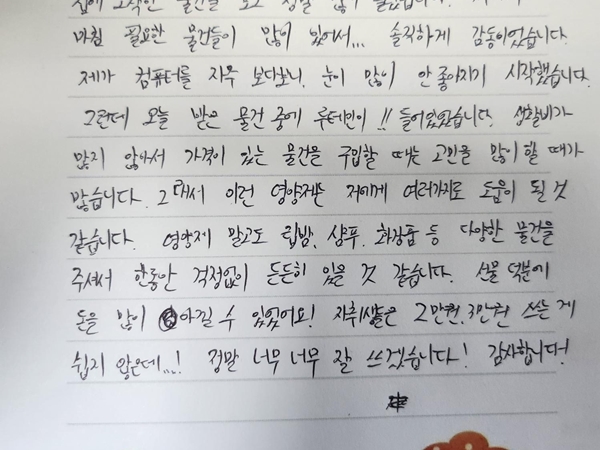 물건을 보고 정말 많이
마침 필요한 물건들이 많이 있어서... 솔직하게 감동이었습니다.
제가 컴퓨터를 자주 보다보니, 눈이 많이 안 좋아지기 시작했습니다.
그런데 오늘 받은 물건 중에 루테인이 !! 들어있었습니다. 생활비가
많지 않아서 가격이 있는 물건을 구입할 때는 고민을 많이 할 때가
많습니다. 그래서 이런 영양제는 저에게 여러가지로 도움이 될 것
같습니다. 영양제 말고도 립밤, 샴푸, 화장품 등 다양한 물건을
주셔서 한동안 걱정없이 든든히 있을 것 같습니다. 선물 덕분에
돈을 많이 아낄 수 있었어요! 자취생은 2만원, 3만원 쓰는 게
쉽지 않은데...! 정말 너무 너무 잘 쓰겠습니다! 감사합니다!